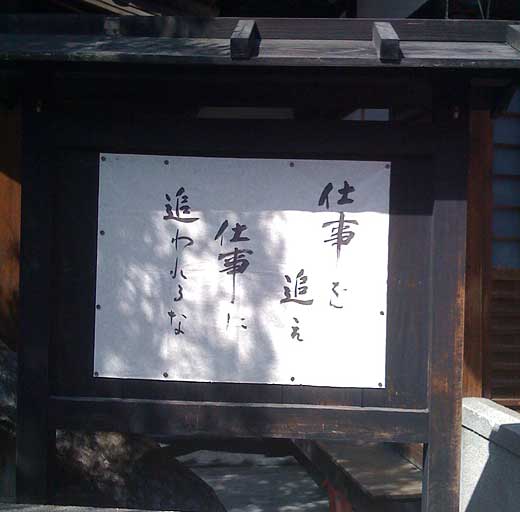 仕事を
追え
仕事に
追われるな